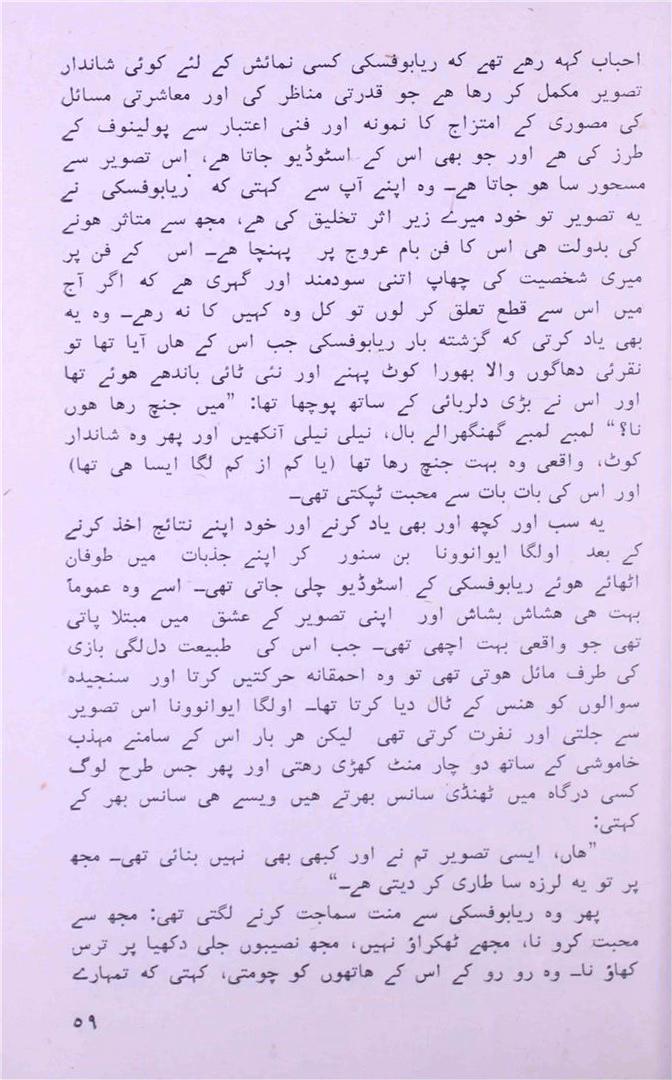 احباب کہہ رہے تھے کہ ریابوفسکی کسی نمائش کے لئے کوئی شاندار
تصویر مکمل کر رہا ہے جو قدرتی مناظر کی اور معاشرتی مسائل
کی مصوری کے امتزاج کا نمونہ اور فنی اعتبار سے پولینوف کے
طرز کی ہے اور جو بھی اس کے اسٹوڈیو جاتا ہے، اس تصویر سے
مسحور سا ہو جاتا ہے۔ وہ اپنے آپ سے کہتی کہ ریابوفسکی نے
یہ تصویر تو خود میرے زیر اثر تخلیق کی ہے، مجھ سے متاثر ہونے
کی بدولت ہی اس کا فن بام عروج پر پہنچا ہے۔ اس کے فن پر
میری شخصیت کی چھاپ اتنی سودمند اور گہری ہے کہ اگر آج
میں اس سے قطع تعلق کر لوں تو کل وہ کہیں کا نہ رہے۔ وہ یہ
بھی یاد کرتی کہ گزشتہ بار ریابوفسکی جب اس کے ہاں آیا تھا تو
نقرئی دھاگوں والا بھورا کوٹ پہنے اور نئی ٹائی باندھے ہوئے تھا
اور اس نے بڑی دلربائی کے ساتھ پوچھا تھا: ”میں جنچ رہا ہوں
نا؟“ لمبے لمبے گھنگھرالے بال، نیلی نیلی آنکھیں اور پھر وہ شاندار
کوٹ، واقعی وہ بہت جنچ رہا تھا (یا کم از کم لگا ایسا ہی تھا)
اور اس کی بات بات سے محبت ٹپکتی تھی۔
یہ سب اور کچھ اور بھی یاد کرنے اور خود اپنے نتائج اخذ کرنے
کے بعد اولگا ایوانوونا بن سنور کر اپنے جذبات میں طوفان
اٹھائے ہوئے ریابوفسکی کے اسٹوڈیو چلی جاتی تھی۔ اسے وہ عموماً
بہت ہی ہشاش بشاش اور اپنی تصویر کے عشق میں مبتلا پاتی
تھی جو واقعی بہت اچھی تھی۔ جب اس کی طبیعت دل لگی بازی
کی طرف مائل ہوتی تھی تو وہ احمقانہ حرکتیں کرتا اور سنجیدہ
سوالوں کو ہنس کے ٹال دیا کرتا تھا۔ اولگا ایوانوونا اس تصویر
سے جلتی اور نفرت کرتی تھی لیکن ہر بار اس کے سامنے مہذب
خاموشی کے ساتھ دو چار منٹ کھڑی رہتی اور پھر جس طرح لوگ
کسی درگاہ میں ٹھنڈی سانس بھرتے ہیں ویسے ہی سانس بھر کے
کہتی:
”ہاں، ایسی تصویر تم نے اور کبھی بھی نہیں بنائی تھی۔ مجھ
پر تو یہ لرزہ سا طاری کر دیتی ہے۔“
پھر وہ ریابوفسکی سے منت سماجت کرنے لگتی تھی: مجھ سے
محبت کرو نا، مجھے ٹھکراؤ نہیں، مجھ نصیبوں جلی دکھیا پر ترس
کھاؤ نا۔ وہ رو رو کے اس کے ہاتھوں کو چومتی، کہتی کہ تمہارے
۵۹